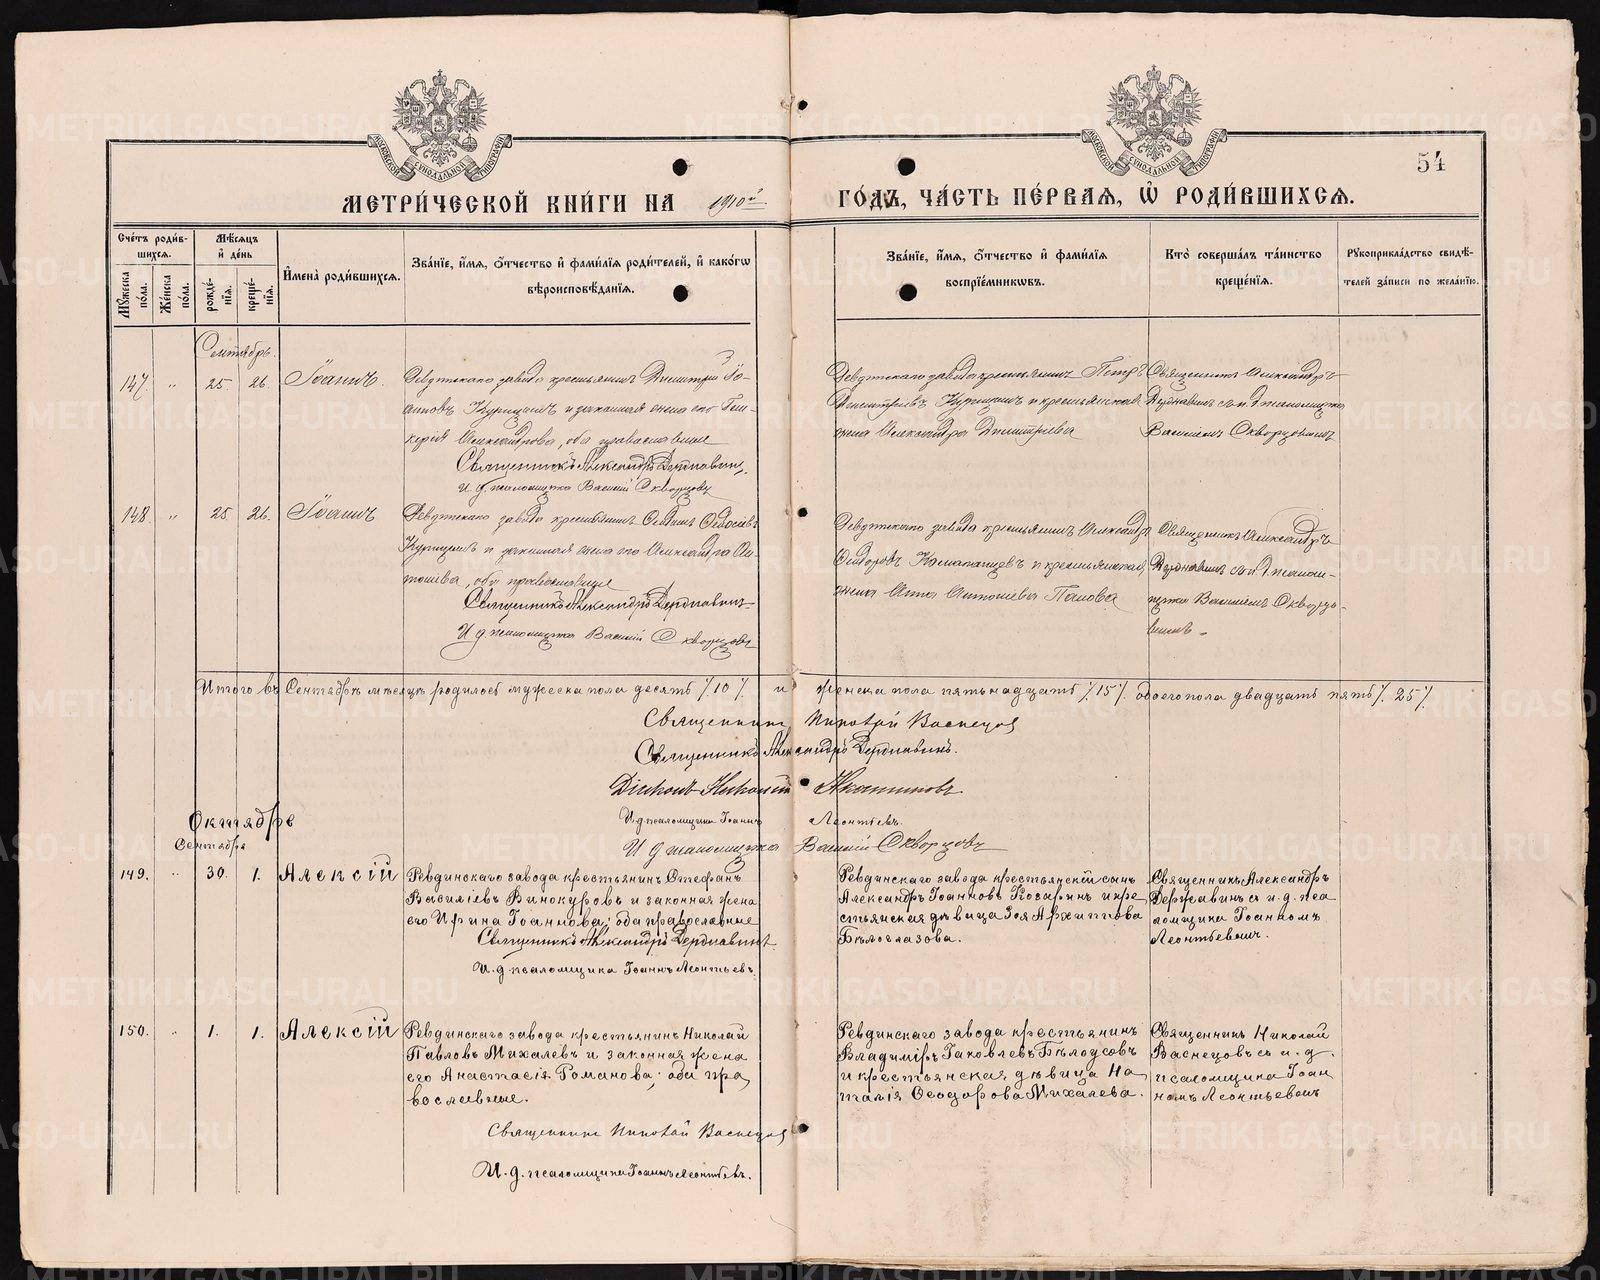 54
МЕТРИ́ЧЕСКОЙ КНИ́ГИ НА 1910й ГО́ДЪ, ЧА́СТЬ ПЕ́РВАѦ, Ѽ РОДИ́ВШИХСѦ.
Сче́тъ роди́в-
шихсѧ.
Мꙋ́жеска по́ла.
Же́нска по́ла.
Мѣ́сѧцъ
и҆ де́нь
рожде́-
нїѧ.
креще́-
нїѧ.
И҆мена̀ роди́вшихсѧ.
Зва́нїе, и҆́мѧ, ѻ҆́тчество и҆ фами́лїѧ роди́телей, и҆ како́гѡ
вѣроисповѣ́данїѧ.
Зва́нїе, и҆́мѧ, ѻ҆́тчество и҆ фами́лїѧ
воспрїе́мникѡвъ.
Кто̀ соверша́лъ та́инство
креще́нїѧ.
Рꙋкоприкла́дство свидѣ́-
телей за́писи по жела́нїю.
Сентябрь.
147. „ 25. 26. Іоаннъ.
Ревдинскаго завода крестьянинъ Димитрій Іо-
анновъ Курицынъ и законная жена его Гли-
керія Александрова, оба православные
Священникъ Александръ Державинъ.
И. д. псаломщика Василій Скворцовъ
Ревдинскаго завода крестьянинъ Петръ
Димитріевъ Курицынъ и крестьянская
жена Александра Димитріева
Священникъ Александръ
Державинъ съ и. д. псаломщика
Василіемъ Скворцовымъ
148. „ 25 26. Іоаннъ
Ревдинскаго завода крестьянинъ
Курицынъ и законная жена его Александра Ан-
тонова, оба православные
Священникъ Александръ Державинъ
И д псаломщика Василій Скворцовъ
Ревдинскаго завода крестьянинъ Александръ
Ѳедоровъ и крестьянская
жена Анна Антоніева Панова
Священникъ Александръ
Державинъ съ и. д. псалом-
щика Василіемъ Скворцо-
вымъ
Итого въ Сентябрѣ мѣсяцѣ родилось мужеска пола десять /.10./. и женска пола пятьнадцать /.15./. обоего пола двадцать пять /. 25./.
Священникъ Николай Васнецовъ
Священникъ Александръ Державинъ.
Діаконъ Николай
И д псаломщика Іоаннъ Леонтьевъ.
И д псаломщика Василій Скворцовъ
Октябрь
Сентября
149. „ 30. 1. Алексій
Ревдинскаго завода крестьянинъ Стефанъ
Василіевъ Винокуровъ и законная жена
его Ирина Іоаннова; оба православные
Священникъ Александръ Державинъ.
И. д. псаломщика Іоаннъ Леонтьевъ.
Ревдинскаго завода крестьянскій сынъ
Александръ Іоанновъ Козыринъ и кре-
стьянская дѣвица Зоя Архиппова
Бѣлоглазова.
Священникъ Александръ
Державинъ съ и. д. пса-
ломщика Іоанномъ
Леонтьевымъ.
150. „ 1. 1. Алексій
Ревдинскаго завода крестьянинъ Николай
Павловъ Михалевъ и законная жена
его Анастасія Романова; оба пра,
вославные.
Священникъ Николай Васнецовъ
И. д. псаломщика Іоаннъ Леонтьевъ.
Ревдинскаго завода крестьянинъ
Владиміръ Іаковлевъ Бѣлоусовъ
и крестьянская дѣвица На
талія Ѳеодорова Михалева.
Священникъ Николай
Васнецовъ съ и. д.
псаломщика Іоан
номъ Леонтьевымъ
METRIKI.GASO-URAL.RU